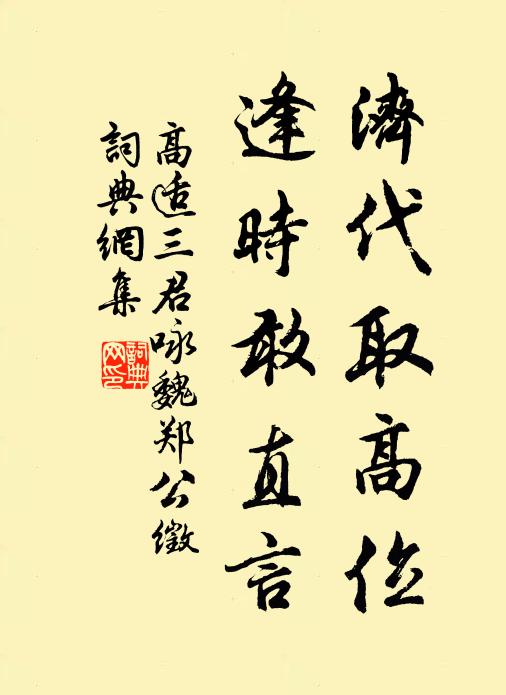 濟代取高位
逢時敢直言
高适三君咏魏郑公徵
詞典網集
詞典网印